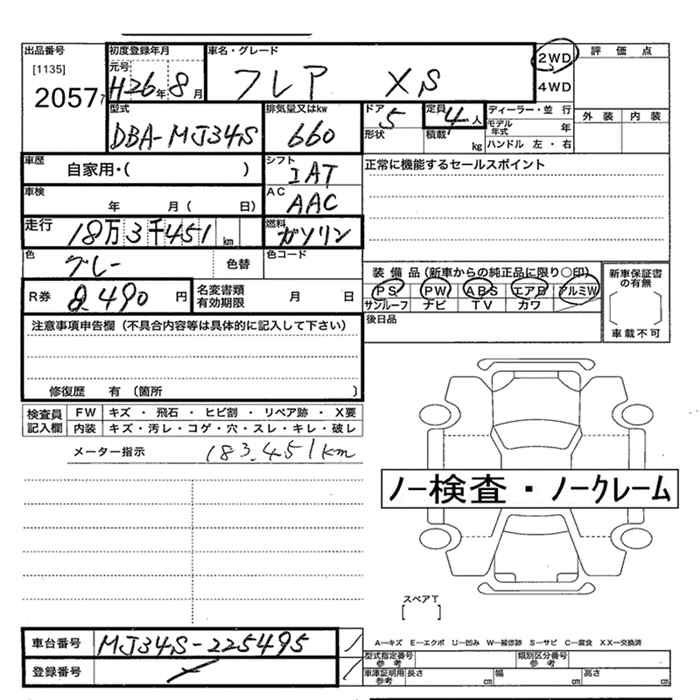 出品番号 初度登録年月 車名・グレード 2WD 評価点
[1135] 元号 H26年8月 フレア XS 4WD
2057 型式 排気量又はkw ドア 定員 ディーラー・並行 外装 内装
DBA-MJ34S 660 5 4人 モデル年式 年
形状 積載 kg ハンドル 左・右
車歴 自家用・( ) シフト IAT 正常に機能するセールスポイント
車検 年 月( 日) AC AAC
走行 18万3千451km 燃料 ガソリン
色 グレー 色替 色コード 装備品(新車からの純正品に限り○印) 新車保証書の有無
R券 8,490円 名変書類有効期限 月 日 PS PW ABS エアB アルミW
サンルーフ ナビ TV カワ
注意事項申告欄(不具合内容等は具体的に記入して下さい) 後日品 車載不可
修復歴 有〔箇所 〕
検査員 FW キズ・飛石・ヒビ割・リペア跡・X要
記入欄 内装 キズ・汚レ・コゲ・穴・スレ・キレ・破レ
メーター指示 183,451km
ノー検査・ノークレーム
スペアT
[ ]
車台番号 MJ34S-225495 A―キズ E―エクボ U―凹み W―補修跡 S―サビ C―腐食 XX―交換済
登録番号 型式指定番号 参考 類別区分番号 参考
車庫証明用 参考 長さ cm 幅 cm 高さ cm